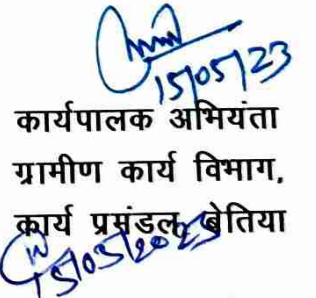 15/05/23
कार्यपालक अभियंता
ग्रामीण कार्य विभाग,
कार्य प्रमंडल, बेतिया
15/05/2023